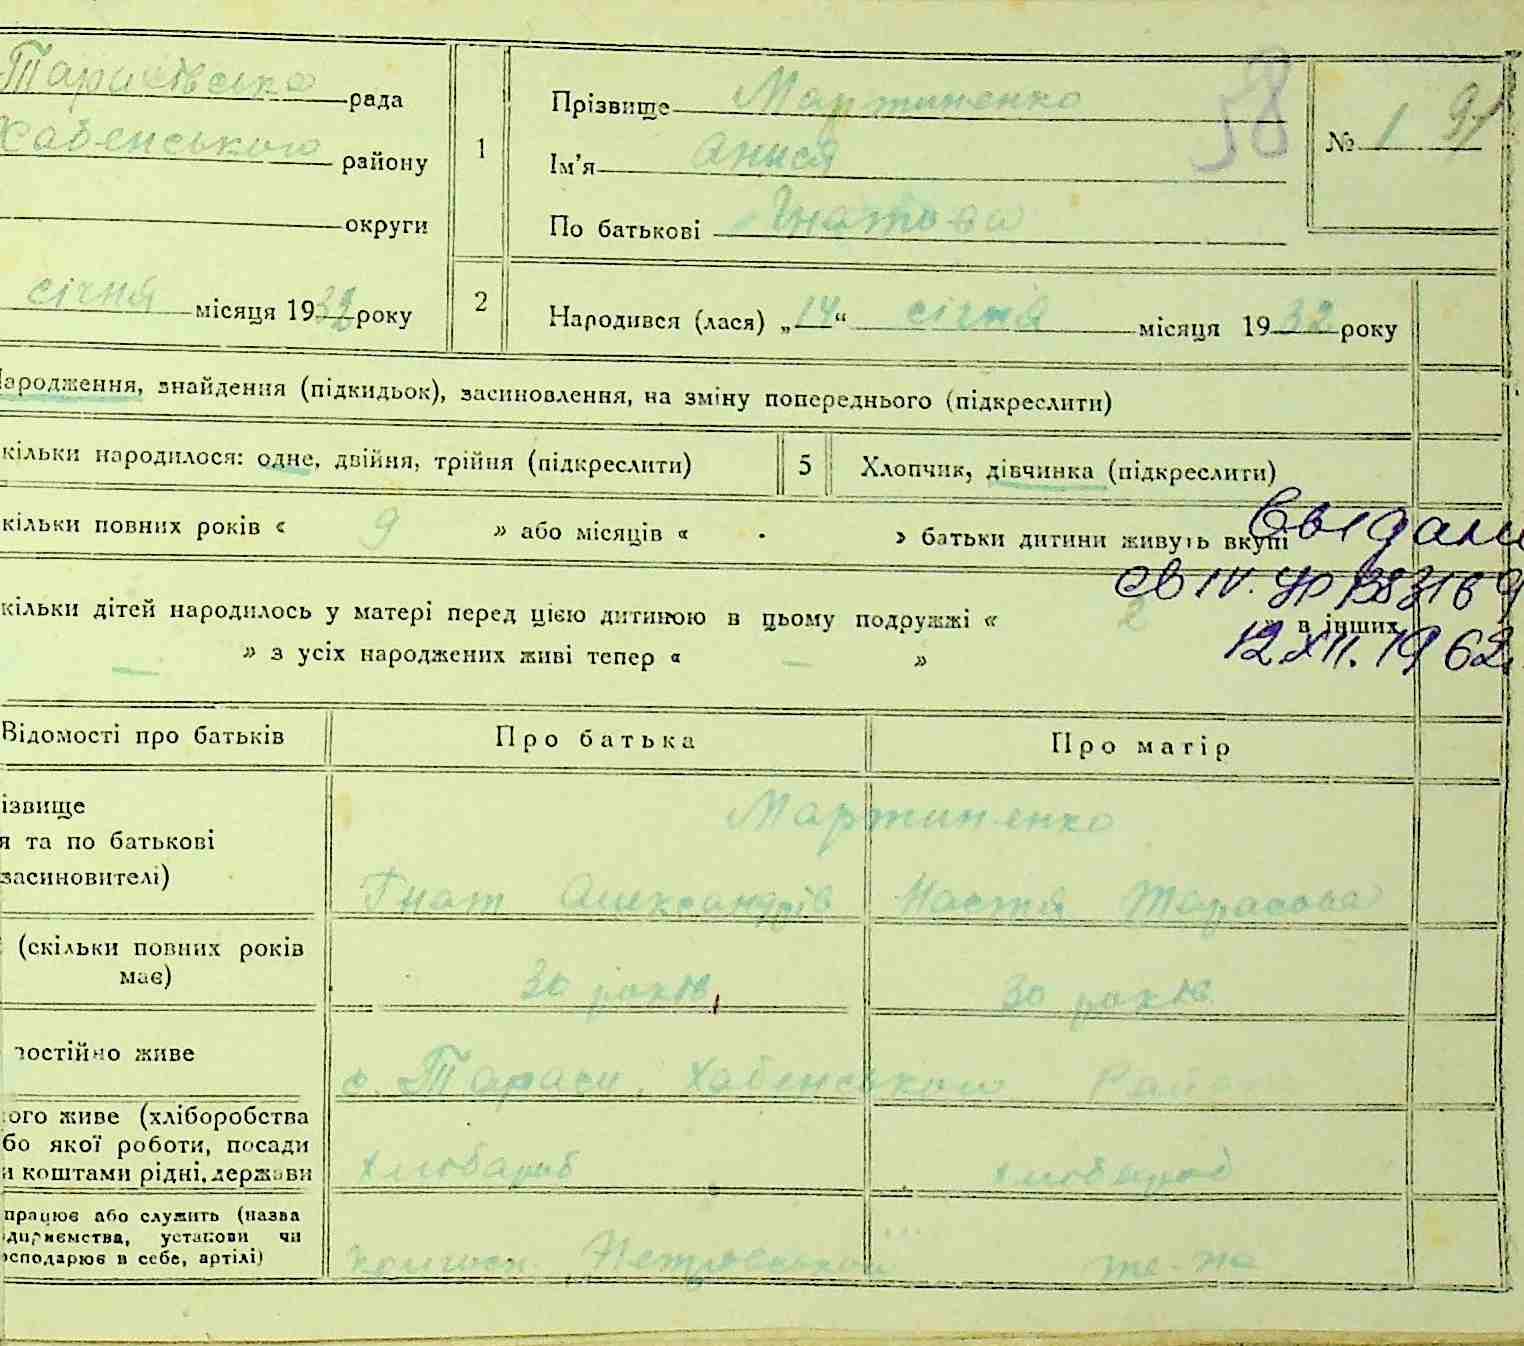 рада
Хабенського району
округи
січня місяця 1932 року
1
Прізвище Мартиненко
Ім'я Анися
По батькові Гнатова
58
№ 1
2
Народився (лася) „14“ січня місяця 1932 року
Народження, знайдення (підкидьок), засиновлення, на зміну попереднього (підкреслити)
кільки народилося: одне, двійня, трійня (підкреслити)
5
Хлопчик, дівчинка (підкреслити)
кільки повних років « 9 » або місяців « - » батьки дитини живуть вкупі
кільки дітей народилось у матері перед цією дитиною в цьому подружжі « 2 » в інших
— » з усіх народжених живі тепер « — »
12.XII.1962.
Відомості про батьків
Про батька
Про матір
ізвище
я та по батькові
засиновителі)
Мартиненко
Гнат Александрів
Настя Тарасова
(скільки повних років має)
30 років
30 років
постійно живе
с. Тараси, Хабенського Район
ого живе (хліборобства
бо якої роботи, посади
и коштами рідні, держави
хлібороб
хлібороб
працює або служить (назва
дприємства, установи чи
осподарює в себе, артілі)
те-ж